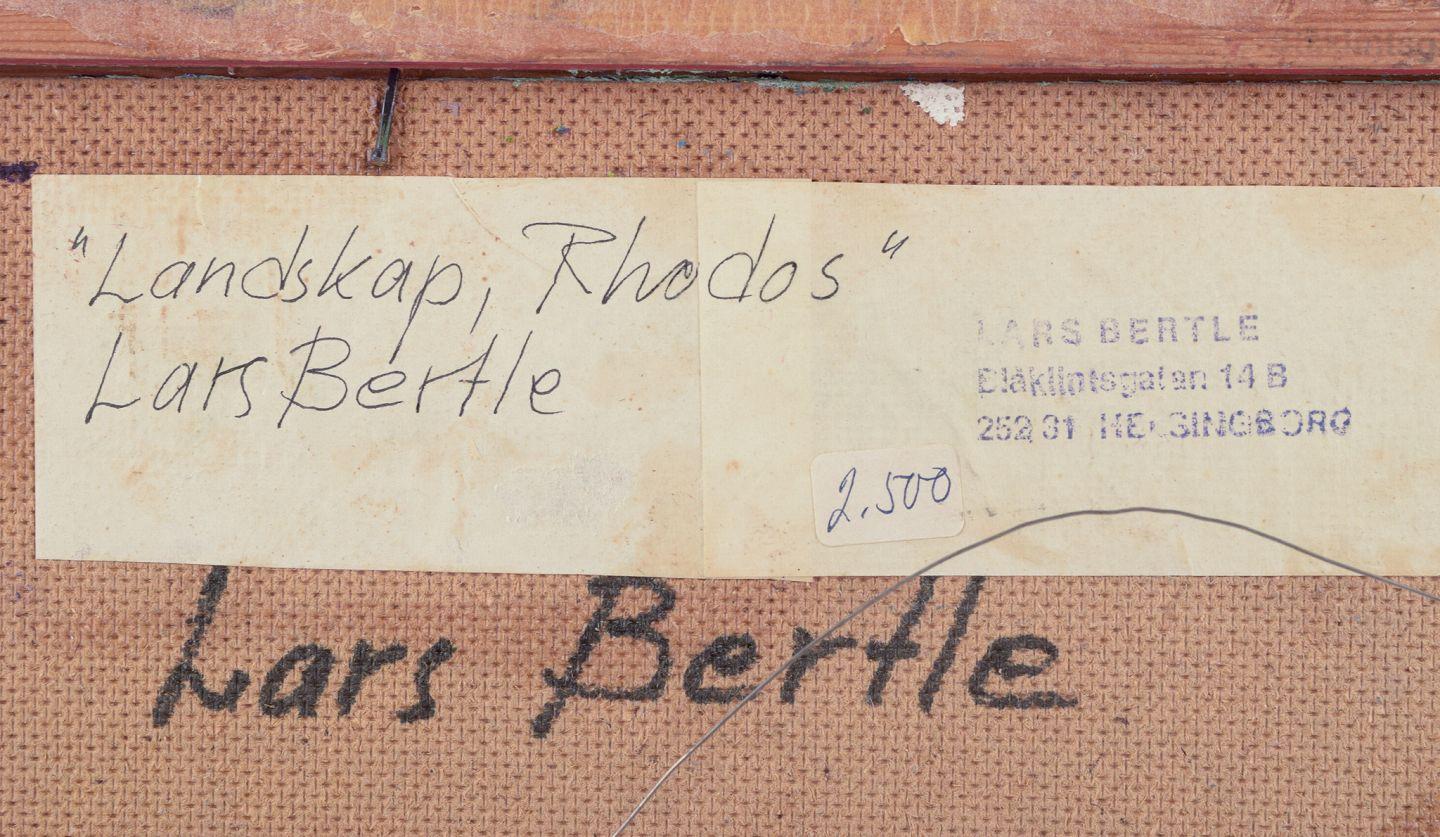 "Landskap, Rhodos"
Lars Bertle
LARS BERTLE
Blåklintsgatan 14 B
252 31 HELSINGBORG
2.500
Lars Bertle